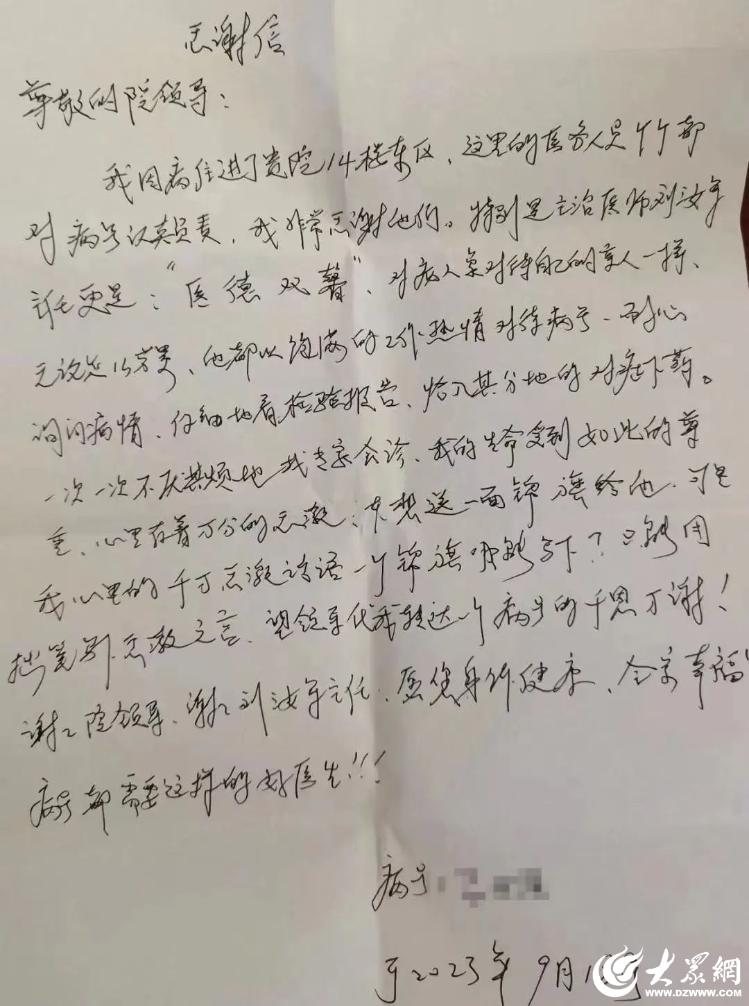 感谢信
尊敬的院领导：
我因病住进了贵院14楼东区，这里的医务人员个个都
对病号认真负责，我非常感谢他们。特别是主治医师刘汝年
主任更是：“医德双馨”，对病人象对待自己的亲人一样、
无论怎么劳累、他都以饱满的工作热情对待病号、耐心
询问病情、仔细地看检验报告、恰入其分地的对症下药。
一次一次不厌其烦地找专家会诊、我的生命受到如此的尊
重、心里存着万分的感激；本想送一面锦旗给他、可是
我心里的千万感激话语一个锦旗咋能写下？只能用
拙笔写感激之言、望领导代我转达一个病号的千恩万谢！
谢谢院领导、谢谢刘汝年主任、愿您身体健康、全家幸福
病号都需要这样的好医生!!!
病号：
于2023年9月1
大众網
www.dzwww.com